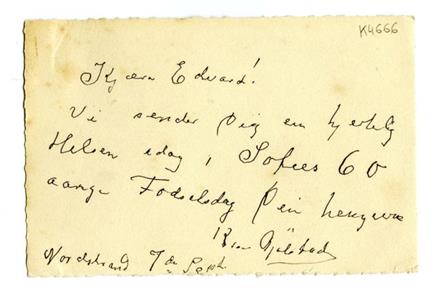 K4666
Kjære Edvard!
Vi sender Dig en hjertelig
Hilsen idag, Sofies 60
aarige Fødselsdag Din hengivne
Nordstrand 7de Septb